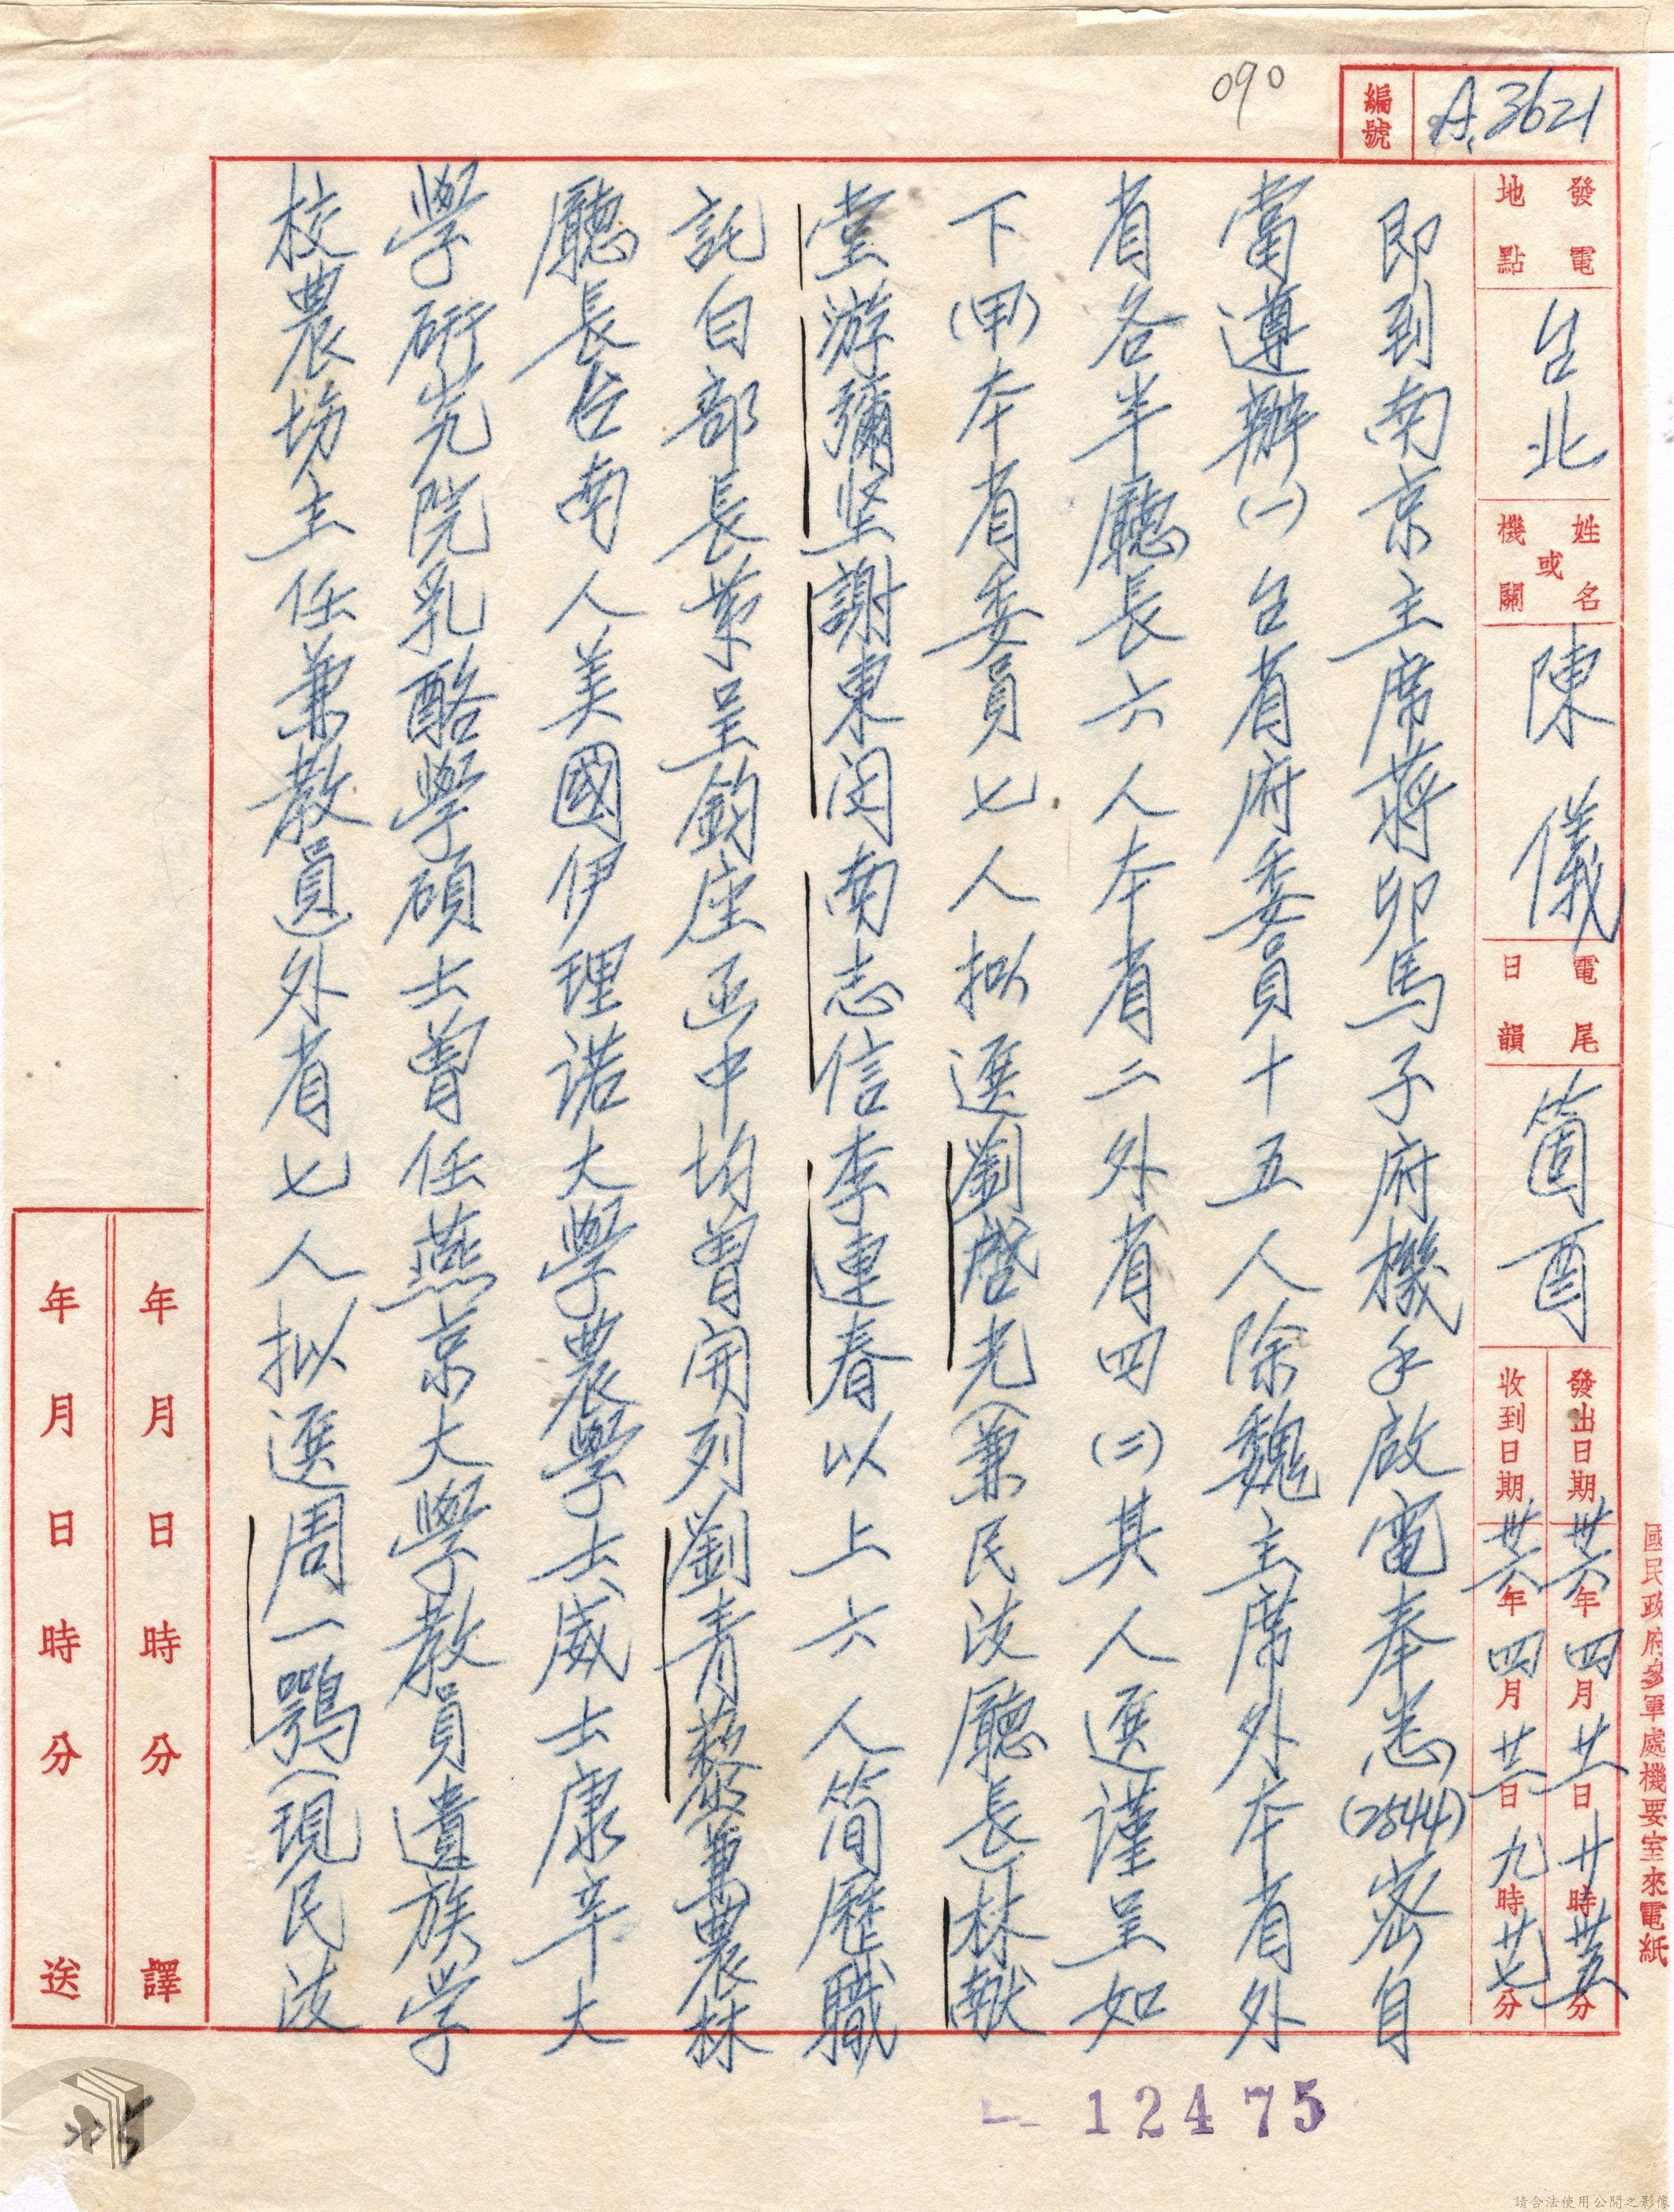 090
編號 A3621
發電地點 台北 姓名或機關 陳儀 電尾日韻 箇酉
發出日期 卅六年四月廿一日廿時卅五分
收到日期 卅六年四月廿二日九時廿七分
國民政府參軍處機要室來電紙
即到南京主席蔣卯馬子府機手啟電奉悉(2544)密自
當遵辦(一)台省府委員十五人除魏主席外本省外
省各半廳長六人本省二外省四(二)其人選謹呈如
下(甲)本省委員七人拟選劉啓光(兼民政廳長)林献
堂游彌坚謝東闵南志信李連春以上六人简歷職
託白部長崇呈鈞座函中均曾開列劉青藜(兼農林
廳長台南人美國伊理諾大學農學士威士康辛大
學研究院乳酪學碩士曾任燕京大學教員遺族学
校農場主任兼教員)外省七人拟選周一鶚(現民政
年月日時分譯
年月日時分送
12475
請合法使用公開之影像